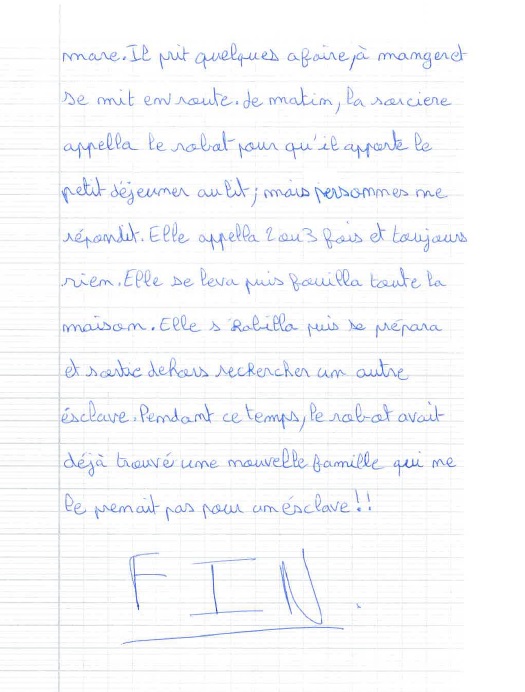 mare. Il prit quelques afaire, à manger et
se mit en route. de matin, la sorciere
appella le robot pour qu'il apporte le
petit déjeuner au lit ; mais personnes ne
répondit. Elle appella 2 ou 3 fois et toujours
rien. Elle se leva puis fouilla toute la
maison. Elle s'habilla puis se prépara
et sortie dehors rechercher un autre
ésclave. Pendant ce temps, le robot avait
déjà trouvé une nouvelle famille qui ne
le prenait pas pour un ésclave !!
FIN.